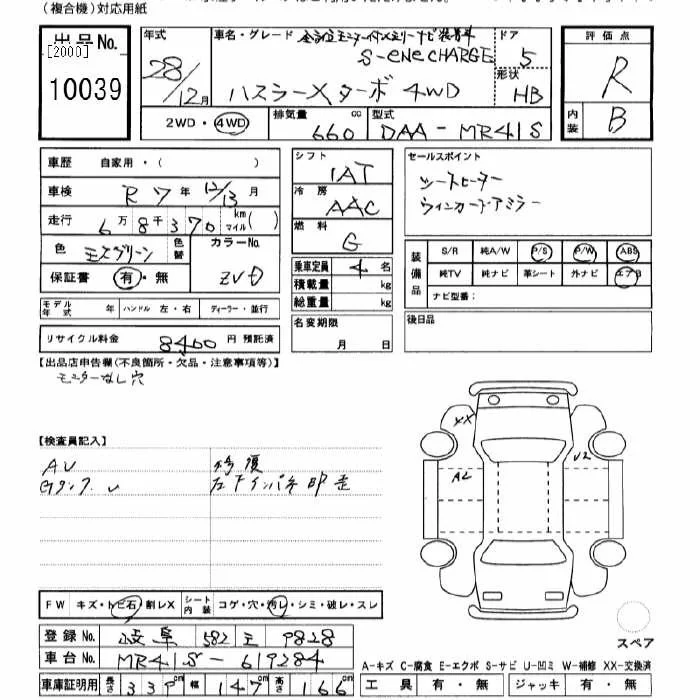 (複合機)対応用紙
出品No.
[2000]
10039
年式
28/12月
車名・グレード
S-ene CHARGE
ハスラーXターボ 4WD
ドア
5
形状
HB
2WD・4WD
排気量
660 cc
型式
DAA-MR41S
評価点
R
内装
B
車歴 自家用・( )
車検 R7年 12/13月
走行 6万8千370 km マイル( )
色 モスグリーン
色替
カラーNo.
ZVD
保証書 有・無
モデル年式 年
ハンドル 左・右
ディーラー・並行
リサイクル料金 8460円 預託済
シフト
IAT
冷房
AAC
燃料
G
乗車定員 4名
積載量 kg
総重量 kg
名変期限
月 日
セールスポイント
シートヒーター
ウィンカードアミラー
装備品
S/R 純A/W P/S P/W ABS
純TV 純ナビ 革シート 外ナビ エアB
ナビ型番:
後日品
【出品店申告欄(不良箇所・欠品・注意事項等)】
モニターなし穴
【検査員記入】
AU
修復
XX
U2
A2
FW キズ・トビ石・割レX
シート内装 コゲ・穴・汚レ・シミ・破レ・スレ
登録No. 岐阜 582 9828
車台No. MR41S-619284
車庫証明用 長さ 339cm 幅 147cm 高さ 166cm
スペア
A-キズ C-腐食 E-エクボ S-サビ U-凹ミ W-補修 XX-交換済
工具 有・無 ジャッキ 有・無